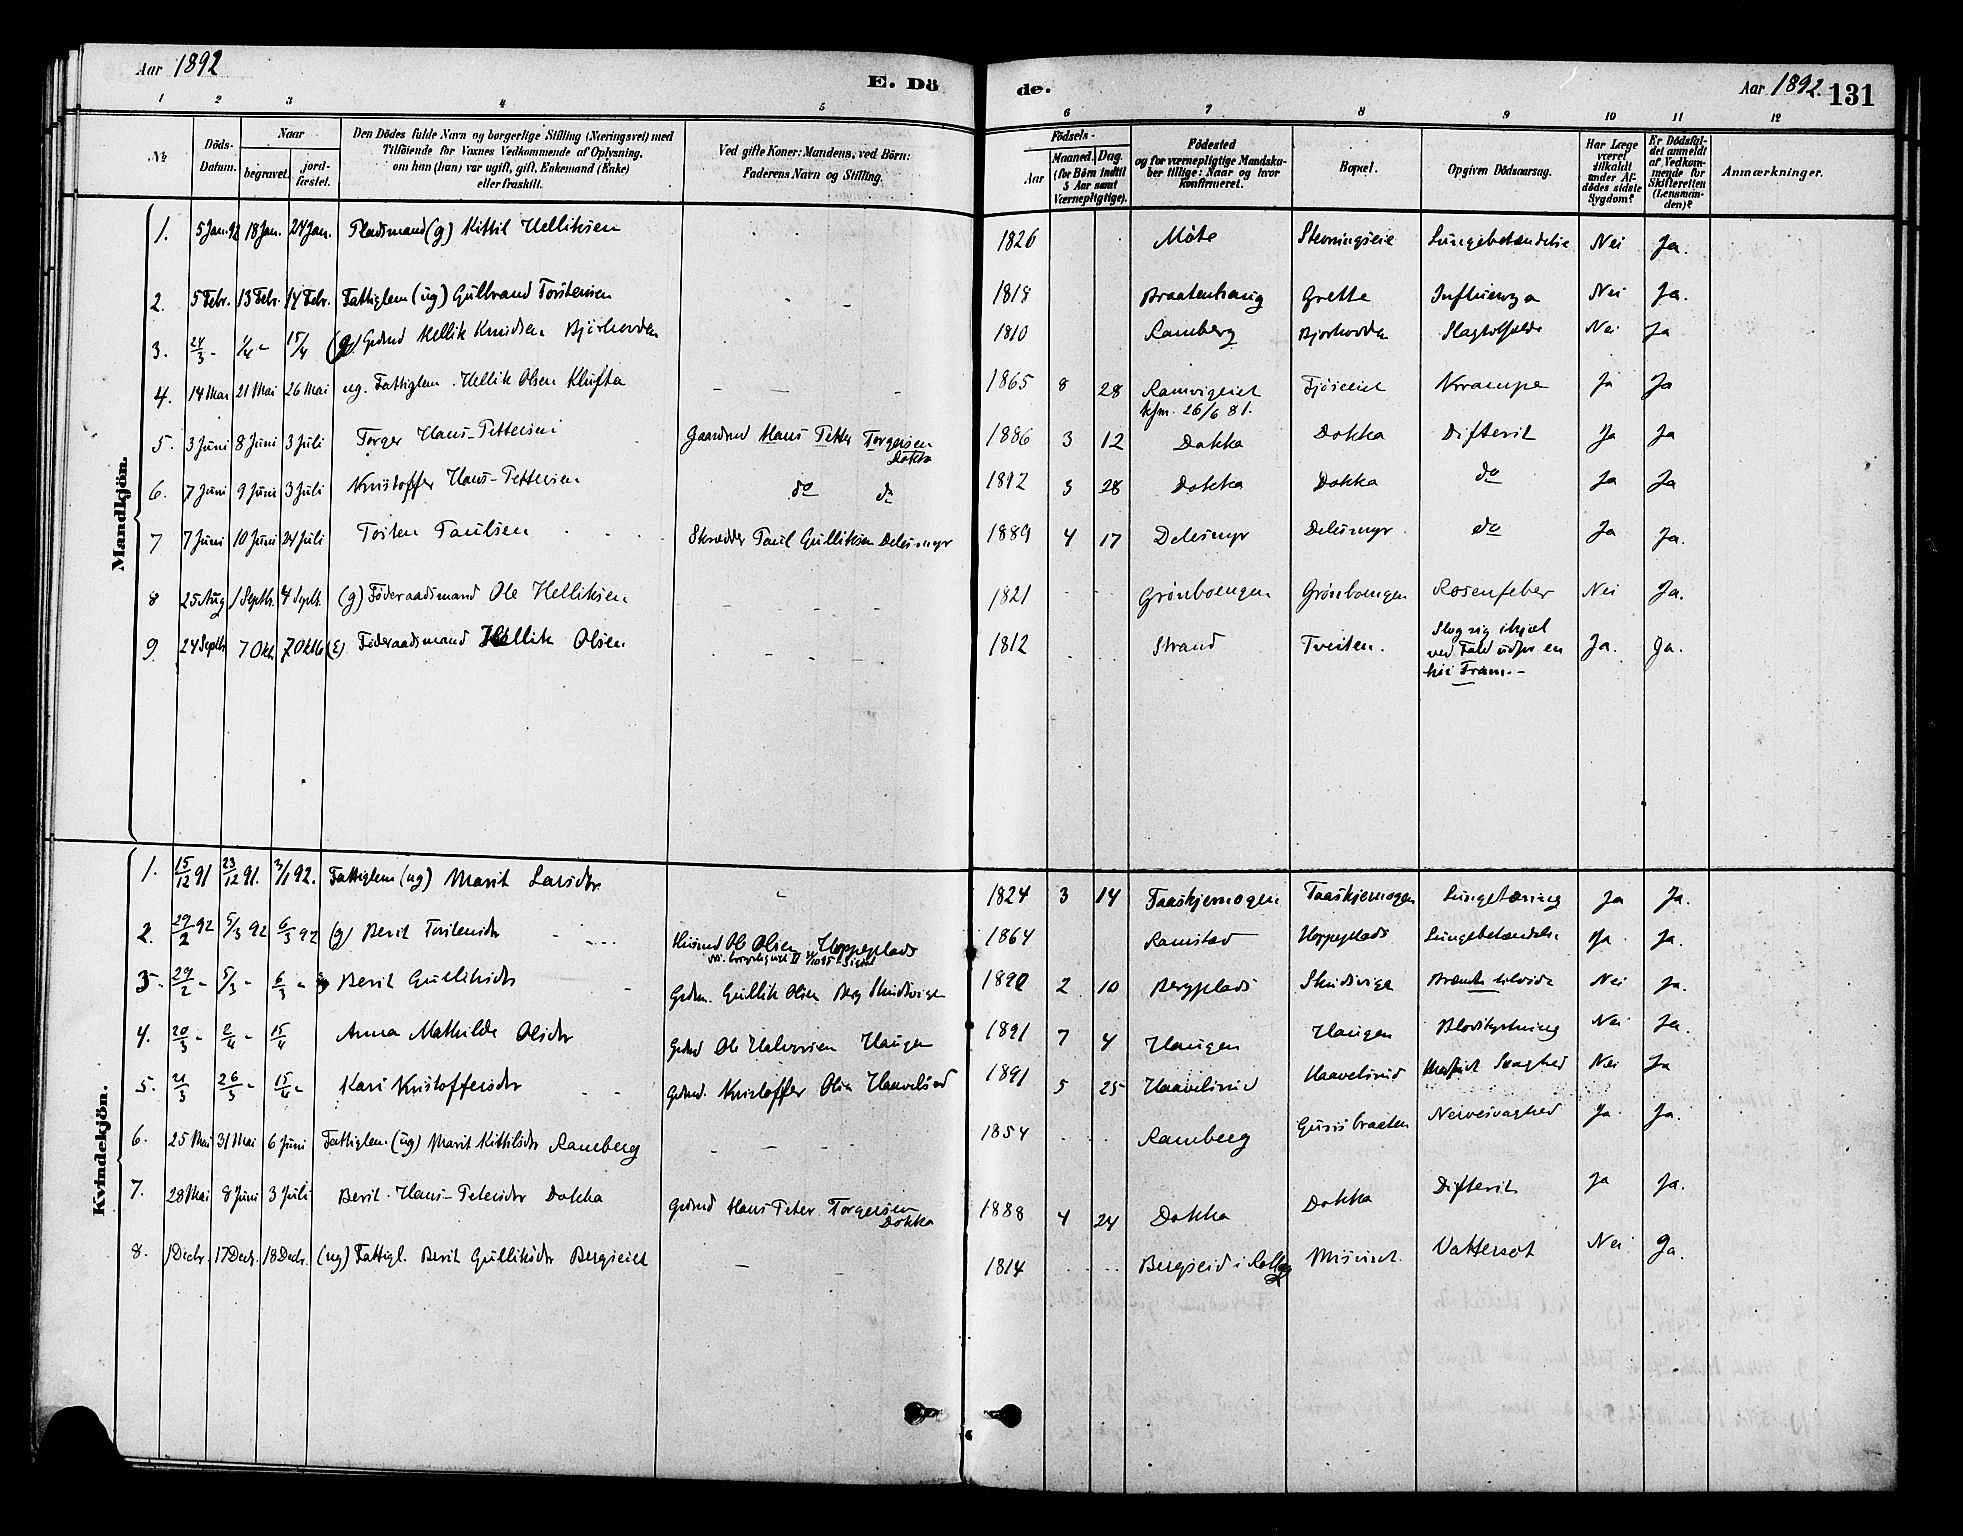 Aar 1892
E. Dö
de.
Aar 1892. 131
1 2 3 4 5 6 7 8 9 10 11 12
No
Döds-
Datum.
Naar
begravet.
jord-
fæstet.
Den Dödes fulde Navn og borgerlige Stilling (Næringsvei) med
Tilföiende for Voxnes Vedkommende af Oplysning,
om han (hun) var ugift, gift, Enkemand (Enke)
eller fraskilt.
Ved gifte Koner: Mandens, ved Börn:
Faderens Navn og Stilling.
Födsels-
Aar
Maaned. Dag.
(for Börn indtil
5 Aar samt
Værnepligtige).
Födested
og for værnepligtige Mandska-
ber tillige: Naar og hvor
konfirmeret.
Bopæl.
Opgiven Dödsaarsag.
Har Læge
været
tilkaldt
under Af-
dödes sidste
Sygdom?
Er Dödsfal-
det anmeldt
af Vedkom-
mende for
Skifteretten
(Lensman-
den)?
Anmærkninger.
Mandkjön.
1. 5 Jan. 92 18 Jan. 24 Jan. Pladsmand (g) Kittil Helliksen 1826 Möte Stevningseie Lungebetændelse Nei Ja.
2. 5 Febr. 13 Febr. 14 Febr. Fattiglem (ug) Gulbrand Torstensen - - 1818 Braatenhaug Grette Influenza Nei Ja.
3. 24/3 - 1/4 - 15/4 (g) Grdmd Hellik Knudsen Björhovden 1810 Ramberg Bjorhovden Slagtilfælde Nei Ja
4. 14 Mai 21 Mai 26 Mai ug. Fattiglem. Hellik Olsen Klufta - - - 1865 8 28 Ramvigeiet Fjöseiet Krampe Ja Ja
kfm. 26/6 81.
5. 3 Juni 8 Juni 3 Juli Torger Hans-Pettersen Gaardmd Hans Petter Torgersen 1886 3 12 Dokka Dokka Difterit Ja Ja
Dokka
6. 7 Juni 9 Juni 3 Juli Kristoffer Hans-Pettersen do do 1892 3 28 Dokka Dokka do Ja Ja
7 7 Juni 10 Juni 24 Juli Tosten Paulsen Skrædder Paul Gulliksen Delesmyr 1889 4 17 Delesmyr Delesmyr do Ja Ja.
8 25 Aug 1 Septb. 4 Septb. (g) Föderaadsmand Ole Helliksen - - - 1821 Grönboengen Grönboengen Rosenfeber Nei Ja.
9. 24 Septb 7 Okt. 7 Oktb (E) Föderaadsmand Hellik Olsen - - - 1812 Strand Tveiten. Slog sig ihjel Ja. Ja.
ved Fald udfor en
höi Tram. -
Kvindekjön.
1. 15/12 91 23/12 91. 3/1 92. Fattiglem (ug) Marit Larsdtr. - 1824 3 14 Faaskjernogen Taaskjernogen Lungetæring Ja Ja.
2. 29/2 92 5/3 92 6/3 92 (g) Berit Torstensdtr Husmd Ole Olsen Hoppeplads 1864 Ramstad Hoppeplads Lungebetændelse Ja. Ja.
3. 29/2 - 5/3 - 6/3 - Berit Gulliksdtr Grdm. Gullik Olsen Berg Skudsvigen 1890 2 10 Bergplads Skudsvigen Brændte Nei Ja.
4. 20/3 - 2/4 - 15/4 Anna Mathilde Olsdtr Grdmd Ole Halvorsen Haugen 1891 7 4 Haugen Haugen Blodstyrtning Nei Ja.
5. 21/3 26/3 - 15/4 - Kari Kristoffersdtr Grdmd. Kristoffer Olsen Haavelsrud 1891 5 25 Haavelsrud Haavelsrud Medfödt Svaghed Nei Ja
6. 25 Mai 31 Mai 6 Juni Fattiglem (ug) Marit Kittilsdtr Ramberg - - - 1854 Ramberg Gunsbraaten Nervesvaghed Ja. Ja.
7. 28 Mai 8 Juni 3 Juli Berit Hans-Petersdtr Dokka Grdmd Hans Peter Torgersen 1888 4 24 Dokka Dokka Difterit Ja Ja.
Dokka
8. 1 Decbr. 17 Decb. 18 Decbr. (ug) Fattigl. Berit Gulliksdtr Bergseiet - 1814 Bergseid i Rollag Vattersot Nei Ja.